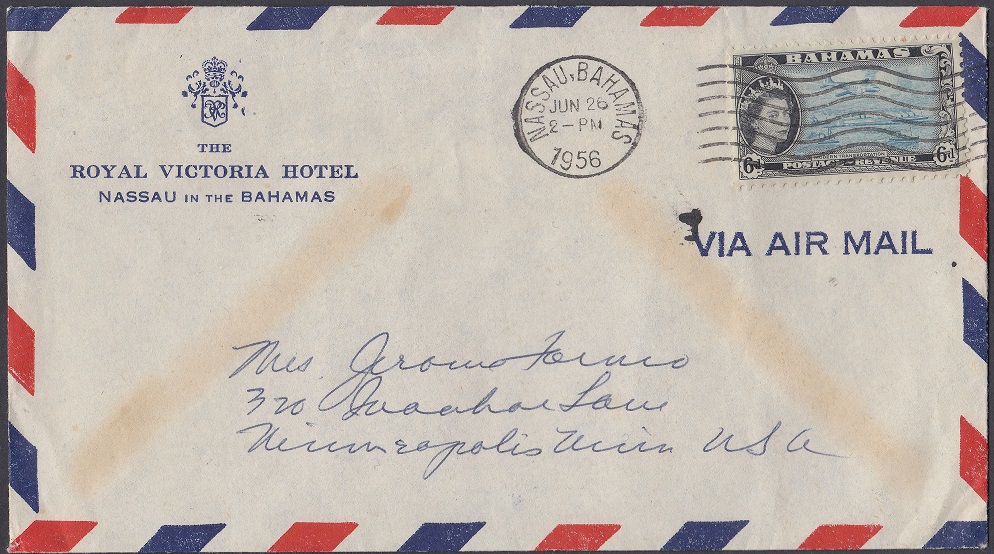 THE
ROYAL VICTORIA HOTEL
NASSAU IN THE BAHAMAS
NASSAU, BAHAMAS
JUN 26
2-PM
1956
BAHAMAS
6d 6d
POSTAGE REVENUE
VIA AIR MAIL
Mrs. Jerome
320 Lane
Minneapolis Minn USA